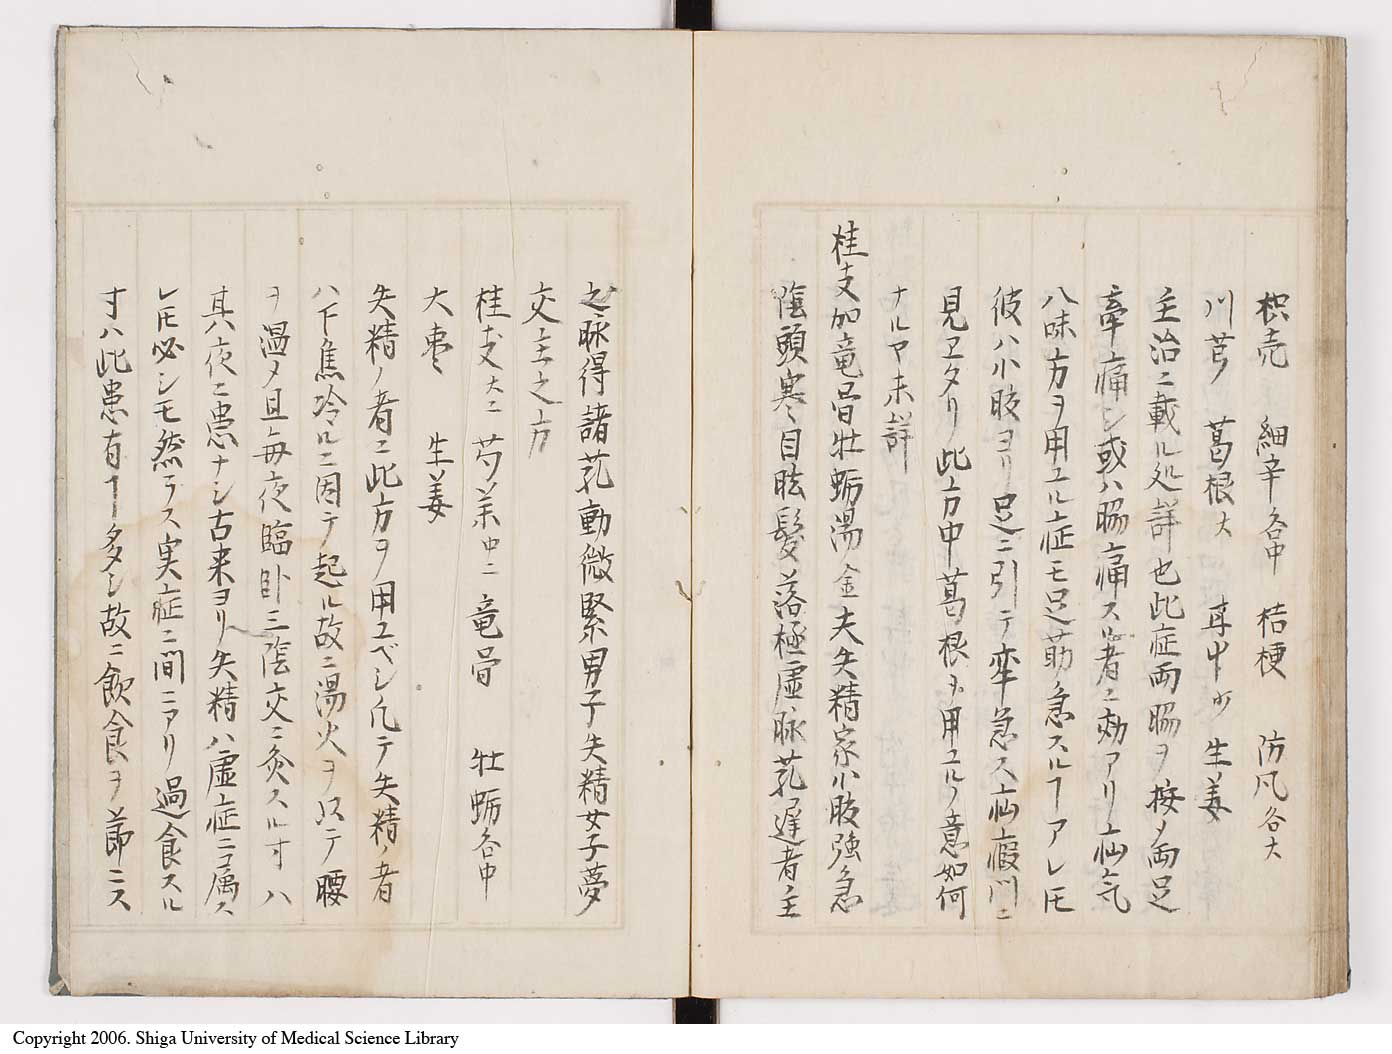 枳売 細辛各中 桔梗 防凮各大
川芎 葛根大 甘中少 生姜
主治ニ載ル処詳也此症両脇ヲ按メ両足
牽痛シ或ハ脇痛スル者ニ効アリ疝気
八味方ヲ用ユル症モ足筋ノ急スルヿアレ𪜈
彼ハ小腹ヨリ足ニ引テ牽急ス疝瘕門ニ
見ヱタリ此方中葛根ヲ用ユルノ意如何
ナルヤ未詳
桂支加竜骨牡蛎湯金夫失精家小腹強急
陰頭寒目眩髪落極虚脉芤遅者主
之脉得諸芤動微緊男子失精女子夢
交主之方
桂支大ニ 芍薬中ニ 竜骨 牡蛎各中
大棗 生姜
失精ノ者ニ此方ヲ用ユベシ凢テ失精ノ者
ハ下焦冷ルニ因テ起ル故ニ湯火ヲ以テ腰
ヲ温タメ且毎夜臨卧三陰交ニ灸スル寸ハ
其夜ニ患ナシ古来ヨリ失精ハ虚症ニ属ス
レ𪜈必シモ然ラス実症ニ間ニアリ過食スル
寸ハ此患有ヿ多シ故ニ飲食ヲ節ニス
Copyright 2006. Shiga University of Medical Science Library